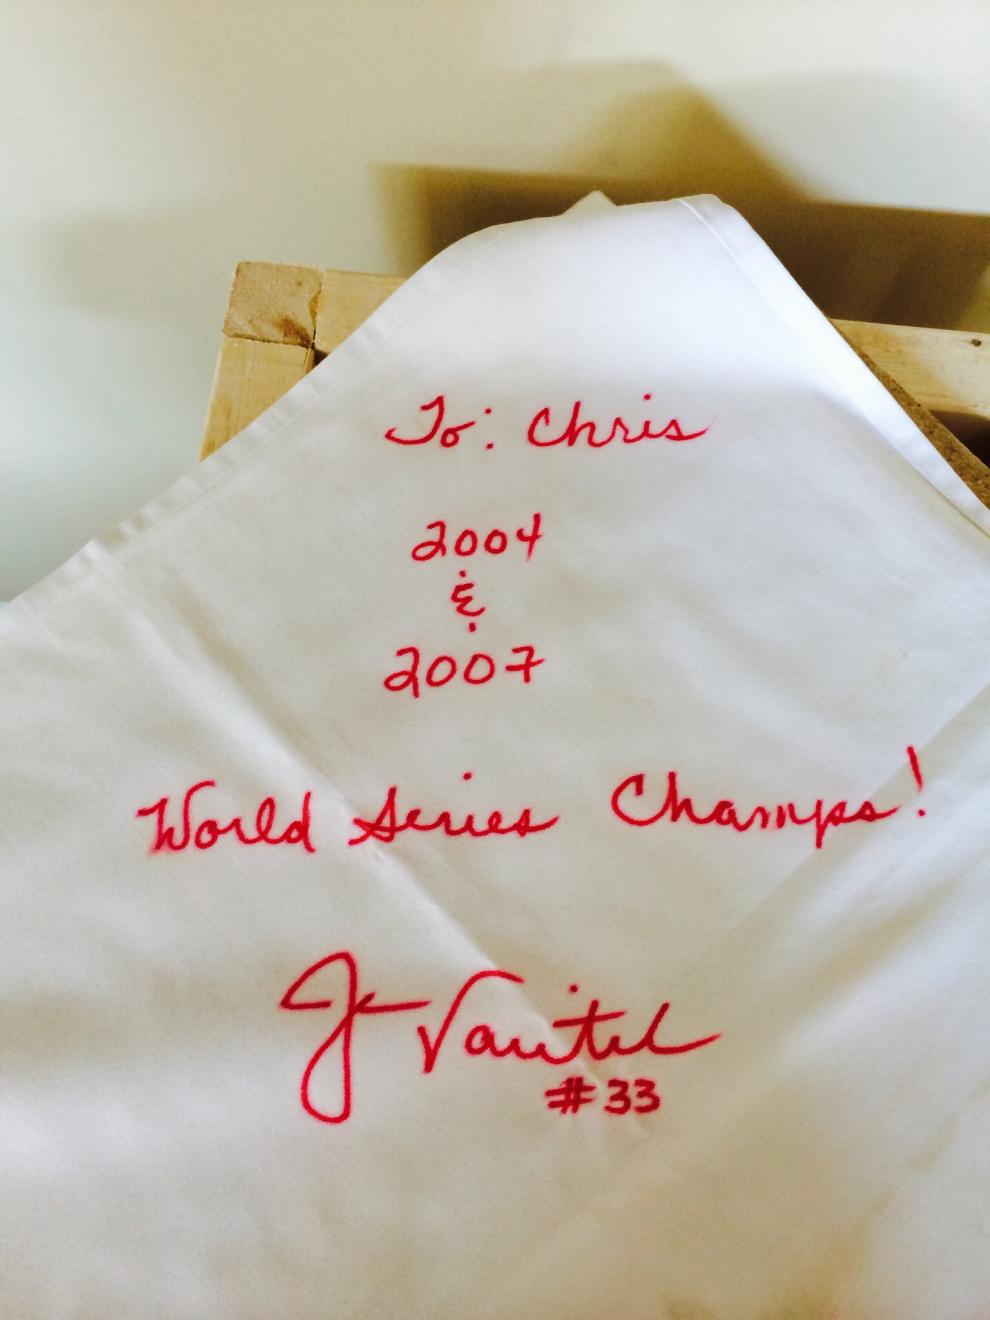 To: Chris
2004
&
2007
World Series Champs!
J Varitek
#33